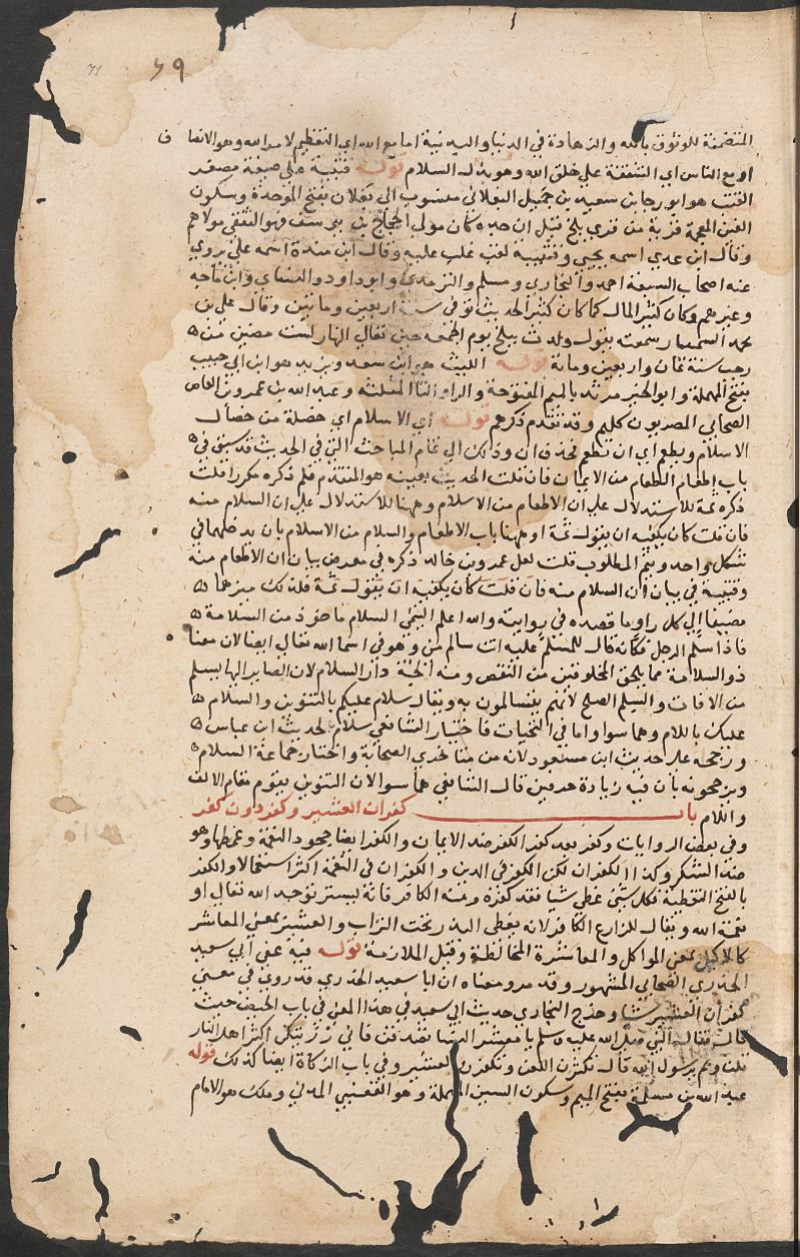 ٦٩
71
المتضمنة للوثوق بالله والزهادة في الدنيا والبدنية اما مع الله اي التعظيم لامر الله وهو الانصاف
او مع الناس اي الشفقة علي خلق الله وهو بذل السلام قوله قتيبة علي صيغة مصغر
القتب هو ابو رجا بن سعيد بن جميل البغلاني منسوب الي بغلان بفتح الموحدة وسكون
الغين المعجمة قرية من قري بلخ قيل ان جده كان مولي الحجاج بن يوسف فهو الثقفي مولاهم
وقال ابن عدي اسمه يحيي وقتيبة لقب غلب عليه وقال ابن مندة اسمه علي روي
عنه اصحاب السبعة احمد والبخاري ومسلم والترمذي وابو داود والنساي وابن ماجه
وغيرهم وكان كثير المال كما كان كثير الحديث توفي سنة اربعين وماتين وقال علي بن
محمد السمسار سمعته يقول ولدت ببلخ يوم الجمعه حين تعالي النهار لست مضين من
رجب سنة ثمان واربعين ومائة قوله الليث هو ابن سعد ويزيد هو ابن ابي حبيب
بفتح المهملة وابو الخير مرثد بالميم المفتوحة والراء والثا المثلثه وعبد الله بن عمرو بن العاص
الصحابي المصريون كلهم وقد تقدم ذكرهم قوله اي الاسلام اي خصلة من خصال
الاسلام ويطع اي ان تطعم فحذف ان وذلك الي تمام المباحث التي في الحديث قد سبق في
باب اطعام الطعام من الايمان فان قلت الحديث بعينه هو المتقدم فلم ذكره مكررا قلت
ذكره ثمة للاستدلال علي ان الاطعام من الاسلام وههنا للاستدلال علي ان السلام منه
فان قلت كان يكفيه ان يقول ثمة او ههنا باب الاطعام والسلام من الاسلام بان يدخلهما في
سلك واحد ويتم المطلوب قلت لعل عمرو بن خالد ذكره في معرض بيان ان الاطعام منه
وقتيبة في بيان ان السلام منه فان قلت كان يكفيه ان يقول ثمة فلذلك ميزهما
مضيفا الي كل راو ما قصده في روايته والله اعلم التيمي السلام ماخوذ من السلامة
فاذا سلم الرجل فكانه قال للمسلم عليه انت سالم مني وهو في اسما الله تعالي ايضا لان معناه
ذو السلامة مما يلحق المخلوقين من النقص ومنه الجنة دار السلام لان الصاير اليها يسلم
من الافات والسلم الصلح لانهم يتسالمون به ويقال سلام عليكم بالتنوين والسلام
عليك باللام وهما سوا واما في التحيات فاختيار الشافعي سلام لحديث ابن عباس
ورجحه علي حديث ابن مسعود لانه من متاخري الصحابة واختار جماعة السلام
ويرجحونه بان فيه زيادة حرفين قال الشافعي هما سوا لان التنوين يقوم مقام الالف
واللام باب كفران العشير وكفر دون كفر
وفي بعض الروايات وكفر بعد كفر الكفر ضد الايمان والكفر ايضا جحود النعمة وغمطها وهو
ضد الشكر وكذا الكفران لكن الكفر في الدين والكفران في النعمة اكثر استعمالا والكفر
بالفتح التغطية فكل شي غطي شيا فقد كفره ومنه الكافر فانه يستر توحيد الله تعالي او
نعمة الله ويقال للزارع الكافر لانه يغطي البذر تحت التراب والعشير بمعني المعاشر
كالاكيل بمعني المواكل والمعاشرة المخالطة وقيل الملازمة قوله فيه عن ابي سعيد
الخدري الصحابي المشهور وقد مر ومعناه ان ابا سعيد الخدري قد روي في معني
كفران العشير شيا وخرج البخاري حديث ابي سعيد في هذا المعني في باب الحيض حيث
قال فقال النبي صلي الله عليه وسلم يا معشر النسا تصدقن فاني رايتكن اكثر اهل النار
قلن وبم يرسول الله قال تكثرن اللعن وتكفرن العشير وفي باب الزكاة ايضا كذلك قوله
عبد الله بن مسلمة بفتح الميم وسكون السين المهملة وهو القعنبي المدني وملك هو الامام